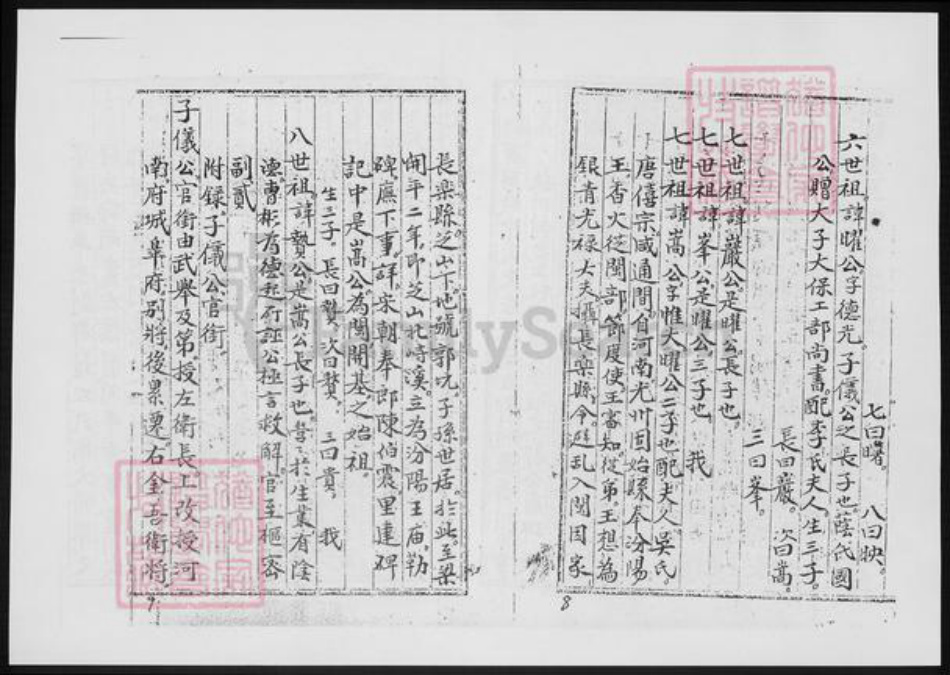 七曰曙。 八曰映。
六世祖諱曜公。字德光。子儀公之長子也。蔭氏國
公贈大子大保工部尚書。配李氏夫人。生三子。
長曰巖。次曰嵩。
三曰峯。
七世祖諱巖公。是曜公長子也。
七世祖諱峯公是曜公三子也 我
七世祖諱嵩公字惟大曜公二子也配夫人吳氏。
唐僖宗咸通間自河南光州固始縣奉汾陽
王香火從閩部節度使王審知從弟。王想為
銀青光祿大夫攝長樂縣令。避乱入閩因家
8
長樂縣之山下。地號郭坑。子孫世居於此。至梁
開平二年。即芝山北峙溪。立為汾陽王庙。勒
碑廡下事。詳宋朝奉郎陳伯震里建碑
記中是嵩公為閩開基之始祖。
生三子。長曰贄。次曰贅。 三曰貴。 我
八世祖諱贄公。是嵩公長子也。於生業有陰
德曹彬有德起行誣公極言救解。官至樞密
副貳
附錄。子儀公官銜。
子儀公官銜由武舉及第。授左衛長上改授河
南府城皐府別將後累遷。右金吾衛將。
9